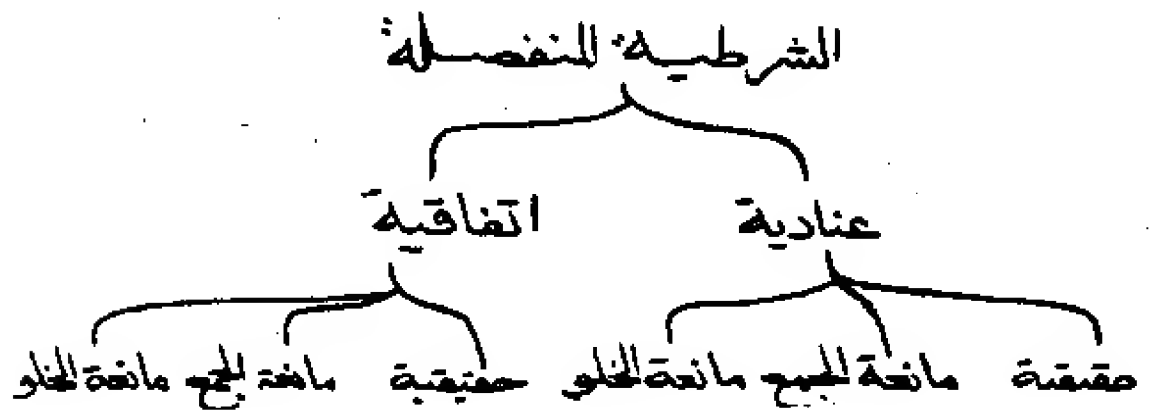 الشرطية المنفصلة
عنادية اتفاقية
حقيقية مانعة الجمع مانعة الخلو حقيقية مانعة الجمع مانعة الخلو